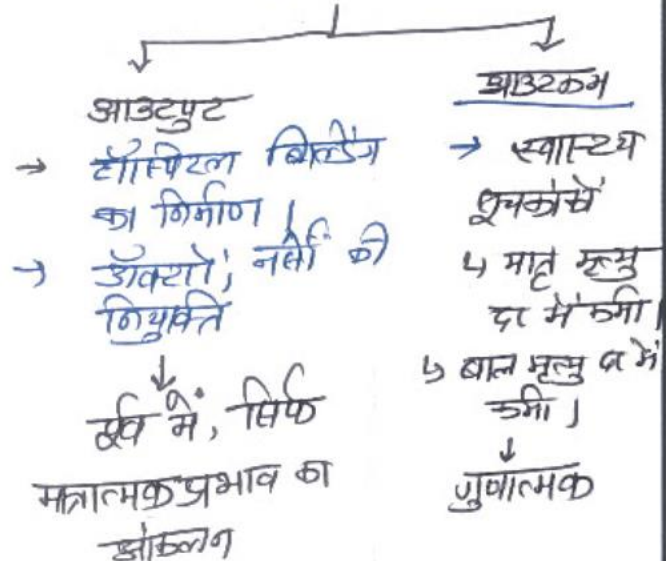 आउटपुट
→ हॉस्पिटल बिल्डिंग
का निर्माण।
→ डॉक्टरों, नर्सों की
नियुक्ति
↓
पूर्व में, सिर्फ
मात्रात्मक प्रभाव का
आंकलन
आउटकम
→ स्वास्थ्य
सूचकांकों
↳ मातृ मृत्यु
दर में कमी।
↳ बाल मृत्यु दर में
कमी।
↓
गुणात्मक